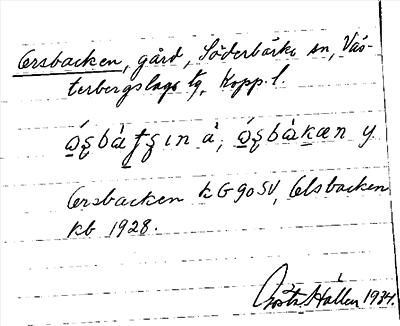 Ersbacken, gård, Söderbärke sn, Väs-
terbergslags tg, Kopp. l.
å, y
Ersbacken kG90SV, Elsbacken
kb 1928.
Gösta Hallen 1934.